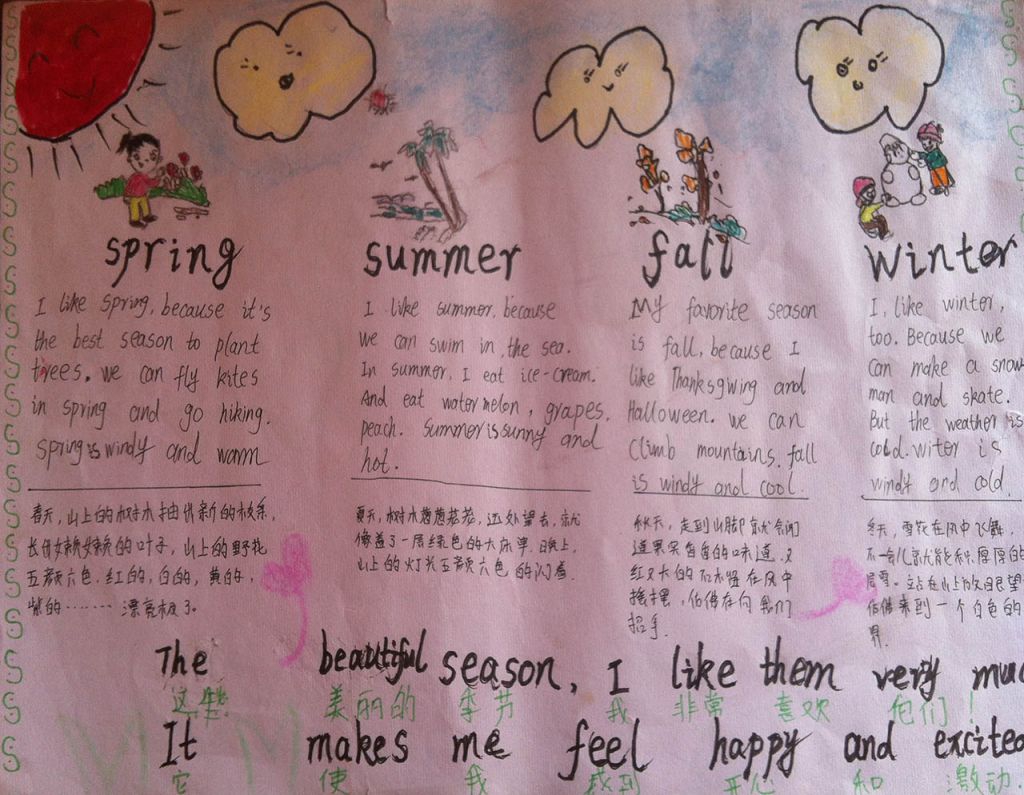 spring
I like spring, because it's
the best season to plant
trees. we can fly kites
in spring and go hiking.
spring is windy and warm
春天，山上的树木抽出新的枝条，
长出嫩嫩的叶子，山上的野花
五颜六色，红的，白的，黄的，
紫的……… 漂亮极了。
summer
I like summer, because
we can swim in the sea.
In summer, I eat ice-cream.
And eat watermelon, grapes.
peach. Summer is sunny and
hot.
夏天，树木葱葱茏茏，远处望去，就
像盖了一层绿色的大床单，晚上，
山上的灯光五颜六色的闪着
fall
My favorite season
is fall, because I
like Thanksgiving and
Halloween. we can
climb mountains. fall
is windy and cool.
秋天，走到山脚就会闻
道果实香香的味道，又
红又大的石木留在风中
摇摆，仿佛在向我们
招手
winter
I, like winter,
too. Because we
can make a snow
man and skate.
But the weather is
cold. witer is
windy and cold.
冬天，雪花在风中飞舞，
不一会儿就能积厚厚的
层雪。站在山上放眼望
仿佛来到一个白色的
界
The beautiful season, I like them very muc
这些 美丽的 季节 我 非常 喜欢 他们！
It makes me feel happy and excited
它 使 我 感到 开心 和 激动.